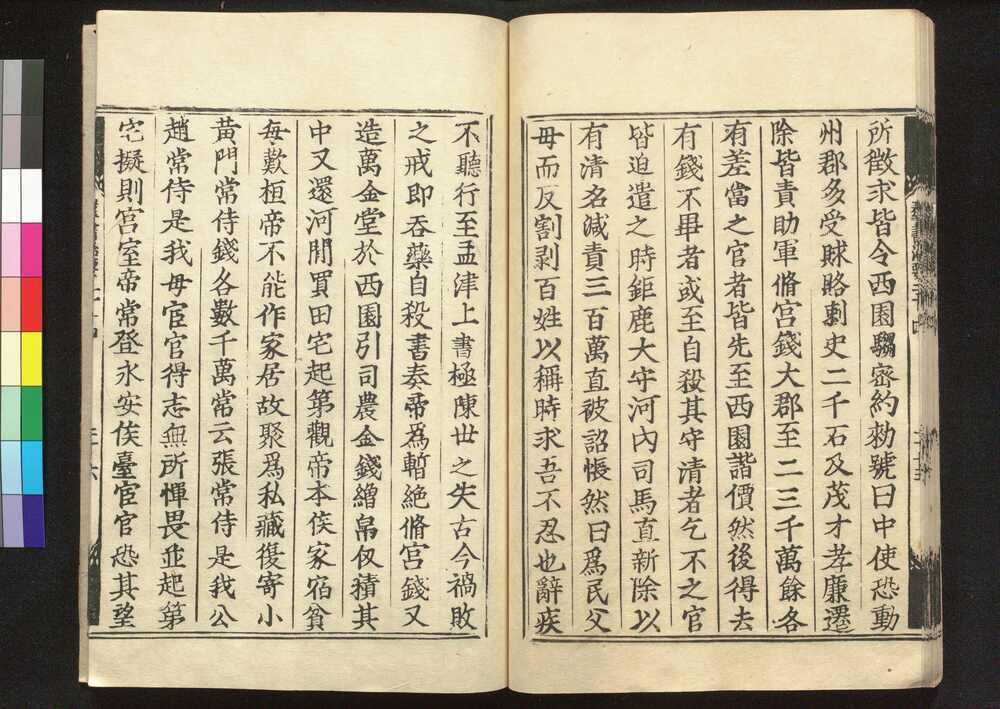 所徴求皆令西園騶密約勑號曰中使恐動
州郡多受賕賂剌史二千石及茂才孝廉遷
除皆責助軍脩宮錢大郡至二三千萬餘各
有差當之官者皆先至西園諧價然後得去
有錢不畢者或至自殺其守清者乞不之官
皆迫遣之時鉅鹿大守河內司馬直新除以
有清名減責三百萬直被詔悵然曰爲民父
母而反割剥百姓以稱時求吾不忍也辭疾
不聽行至孟津上書極陳世之失古今禍敗
之戒即吞藥自殺書奏帝爲暫絶脩宮錢又
造萬金堂於西園引司農金錢繒帛仭積其
中又還河閒買田宅起第觀帝本侯家宿貧
每歎桓帝不能作家居故聚爲私藏復寄小
黃門常侍錢各數千萬常云張常侍是我公
趙常侍是我母宦官得志無所憚畏並起第
宅擬則宮室帝常登永安侯臺宦官恐其望